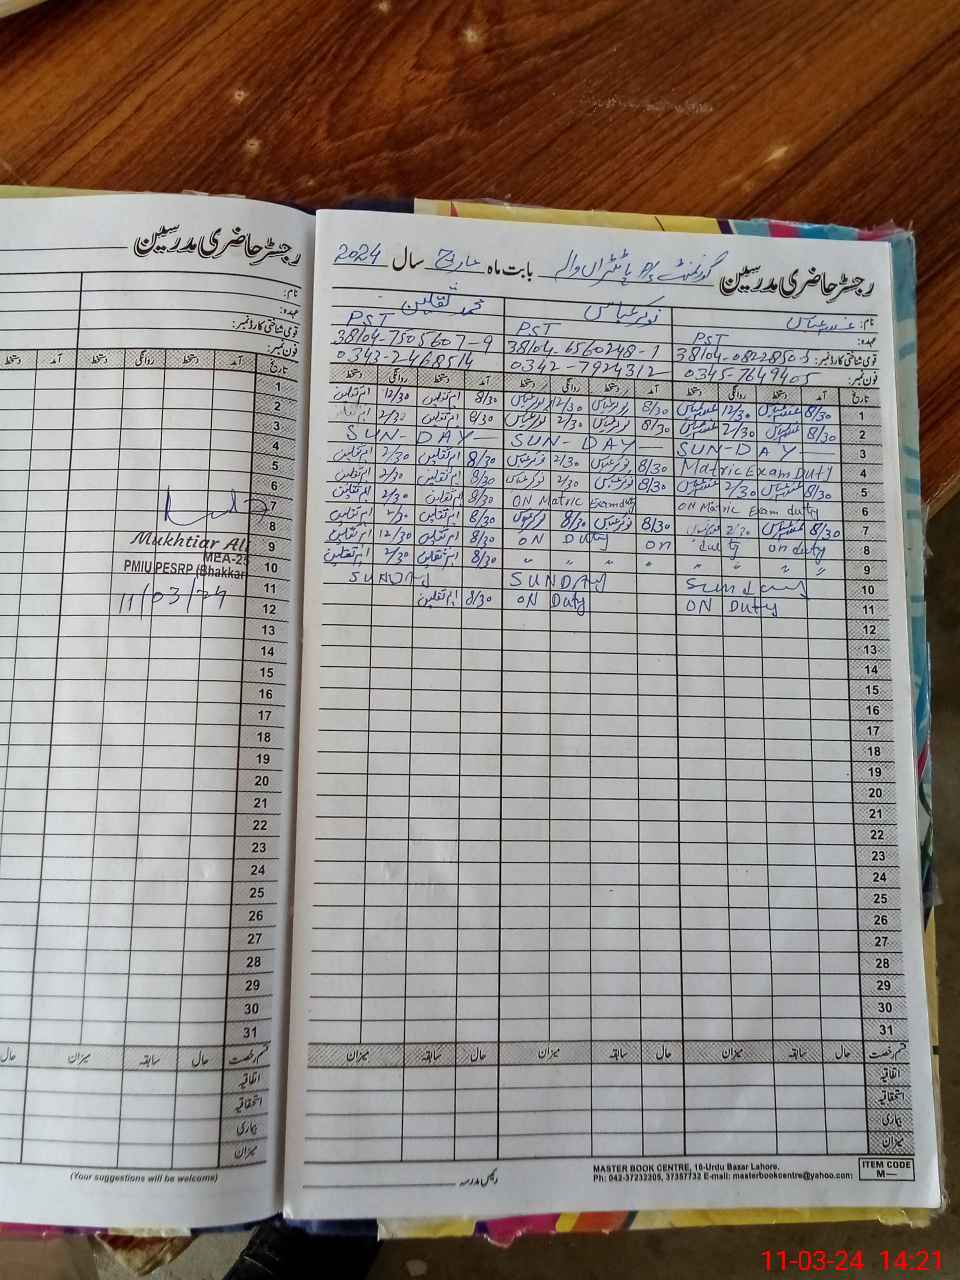 رجسٹر حاضری مدرسین
نام:
عہدہ:
قومی شناختی کارڈ نمبر:
فون نمبر:
تاریخ آمد دستخط روانگی دستخط آمد دستخط
1
2
3
4
5
6
7
8
9
10
11
12
13
14
15
16
17
18
19
20
21
22
23
24
25
26
27
28
29
30
31
Mukhtiar Ali
MEA-25
PMIU PESRP (Bhakkar
11/03/24
قسم رخصت حال سابقہ میزان حال
اتفاقیہ
استحقاقیہ
بیماری
میزان
(Your suggestions will be welcome)
رجسٹر حاضری مدرسین گورنمنٹ بابت ماہ مارچ سال 2024
نام: غلام عباس نور عباس محمد ثقلین
عہدہ: PST PST PST
قومی شناختی کارڈ نمبر: 38104-0822850-5 38104-6560248-1 38104-7505607-9
فون نمبر: 0345-7649405 0342-7924312 0343-2468514
تاریخ آمد دستخط روانگی دستخط آمد دستخط روانگی دستخط آمد دستخط روانگی دستخط
1 8/30 غلام عباس 12/30 غلام عباس 8/30 نور عباس 12/30 نور عباس 8/30 ایم ثقلین 12/30 ایم ثقلین
2 8/30 غلام عباس 2/30 غلام عباس 8/30 نور عباس 2/30 نور عباس 8/30 ایم ثقلین 2/30
3 SUN-DAY SUN-DAY SUN-DAY
4 Matric Exam Duty 8/30 نور عباس 2/30 نور عباس 8/30 ایم ثقلین 2/30 ایم ثقلین
5 8/30 غلام عباس 2/30 غلام عباس 8/30 نور عباس 2/30 نور عباس 8/30 ایم ثقلین 2/30 ایم ثقلین
6 ON Matric Exam duty ON Matric Exam duty 8/30 ایم ثقلین 2/30 ایم ثقلین
7 8/30 غلام عباس 2/30 8/30 نور عباس 8/30 نور عباس 8/30 ایم ثقلین 2/30 ایم ثقلین
8 on duty " duty on ON Duty 8/30 ایم ثقلین 12/30 ایم ثقلین
9 " " " " " " " " 8/30 ایم ثقلین 2/30 ایم ثقلین
10 Sunday SUNDAY SUNDAY
11 ON Duty ON Duty 8/30 ایم ثقلین
12
13
14
15
16
17
18
19
20
21
22
23
24
25
26
27
28
29
30
31
قسم رخصت حال سابقہ میزان حال سابقہ میزان حال سابقہ میزان
اتفاقیہ
استحقاقیہ
بیماری
میزان
رئیس مدرسہ
MASTER BOOK CENTRE, 16-Urdu Bazar Lahore.
Ph: 042-37232205, 37357732 E-mail: masterbookcentre@yahoo.com
ITEM CODE
M—
11-03-24 14:21